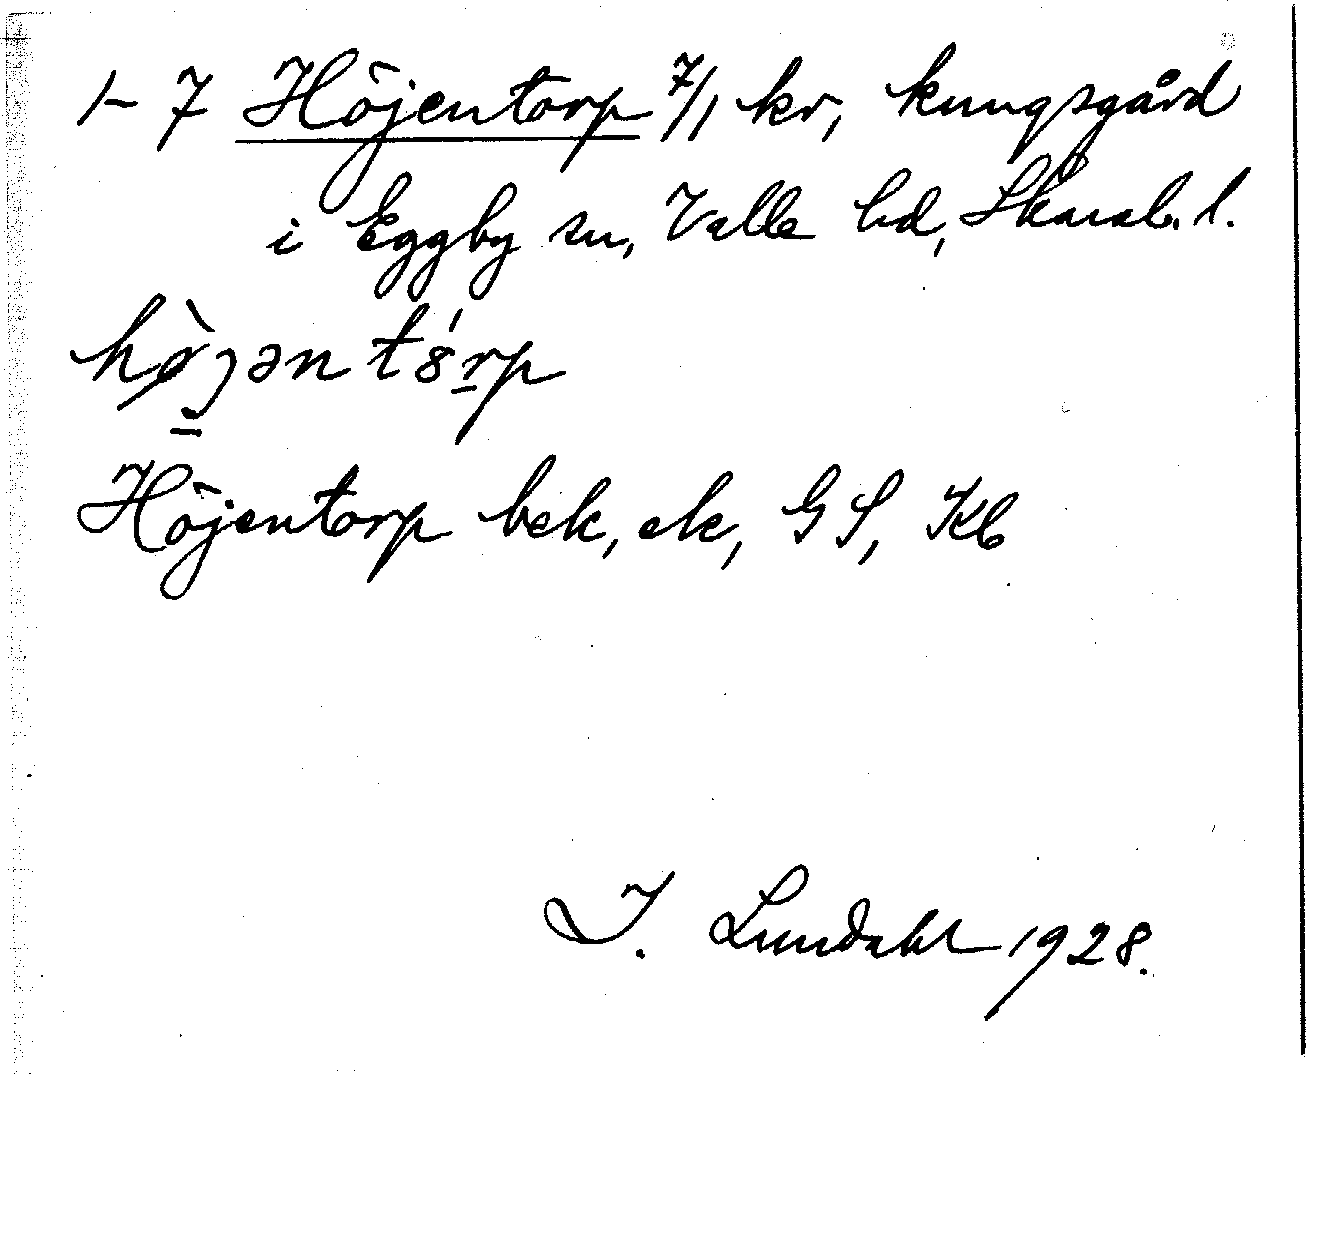 1-7 Höjentorp 7/1 kr, kungsgård
i Eggby sn, Valle hd, Skarab. l.
hø̀jən tȣ́rp
Höjentorp bek, ek, GS, Kb
I. Lundahl 1928.